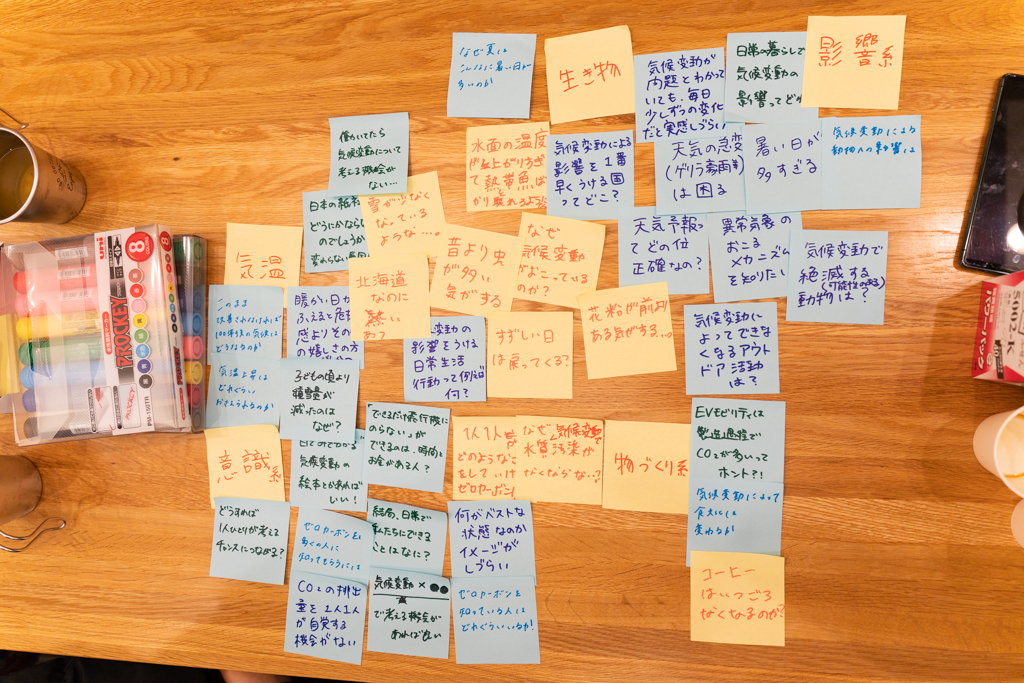 なぜ夏は
こんなに暑い日が
多いのか
生き物
気候変動が
問題とわかって
いても、毎日
少しずつの変化
だと実感しづらい
日常の暮らしで
気候変動の
影響ってど
影響系
働いてたら
気候変動について
考える機会が
ない…
水面の温度
が上がりすぎ
て熱帯魚は
気候変動による
影響を1番
早くうける国
ってどこ?
天気の急変
(ゲリラ豪雨等)
は困る
暑い日が
多すぎる
気候変動による
動物への影響は
日本の
どうにかなら
のでしょうか
雪が少なく
なっている
ような…。
気温
昔より虫
が多い
気がする
なぜ
気候変動
がよこっている
のか?
天気予報っ
てどの位
正確なの?
異常気象の
おこる
メカニズム
を知りたい
気候変動で
絶滅する
(可能性のある)
動物は?
北海道
なのに
熱い
このまま
改善されなければ
100年後の気候は
どうなるのか
気温上昇は
どれぐらい
おさえられるのか
暖かい日が
ふえると危
感よりその
の嬉しさの方
変動の
影響をうける
日常生活
行動って例えば
何?
すずしい日
は戻ってくる?
花粉が前より
ある気がする…
気候変動に
よってできな
くなるアウト
ドア活動
は?
子どもの頃より
積雪量が
減ったのは
なぜ?
できるだけ飛行機に
のらない、が
できるのは、時間と
お金がある人?
1人1人が
どのような
をして
ゼロカーボン
なぜ気候変動で
水質汚染が
なくならない?
物づくり系
EVモビリティは
製造過程で
CO2が多いって
ホント?!
意識系
気候変動の
絵本とかあれば
いい!
気候変動によって
食文化は
変わるか
どうすれば
1人ひとりが考える
チャンスにつながる?
ゼロカーボンを
多くの人に
知ってもらうには
結局、日常で
私たちにできる
ことはなに?
何がベストな
状態なのか
イメージが
しづらい
コーヒー
はいつごろ
なくなるのか?
CO2の排出
量を1人1人
が自覚する
機会がない
気候変動×●●
で考える機会が
あれば良い
ゼロカーボンを
知っている人は
どれぐらいいるか!
PROCKEY
8
PM-150TR